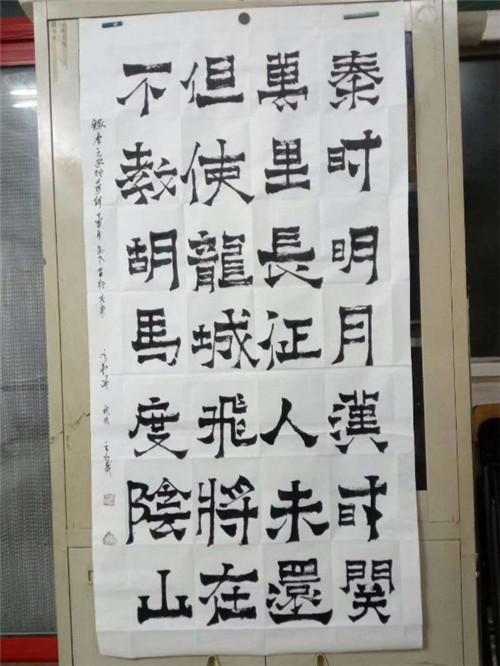 秦时明月漢时関
萬里長征人未還
但使龍城飛將在
不教胡馬度陰山